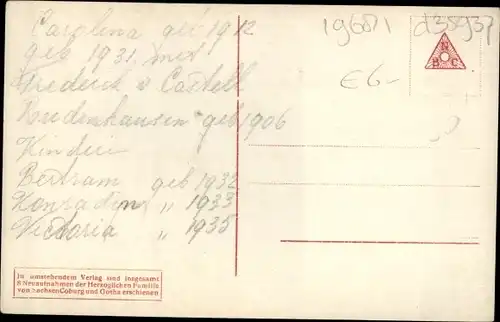 Carolina geb 1912
geb 1931. met
Frederick v Castell
Rudenhausen geb 1906
Kinder
Bertram geb 1932
Konradin " 1933
Victoria " 1935
19681
d35937
€6-
N
B C
In umstehendem Verlag sind insgesamt
8 Neuaufnahmen der Herzoglichen Familie
von Sachsen Coburg und Gotha erschienen